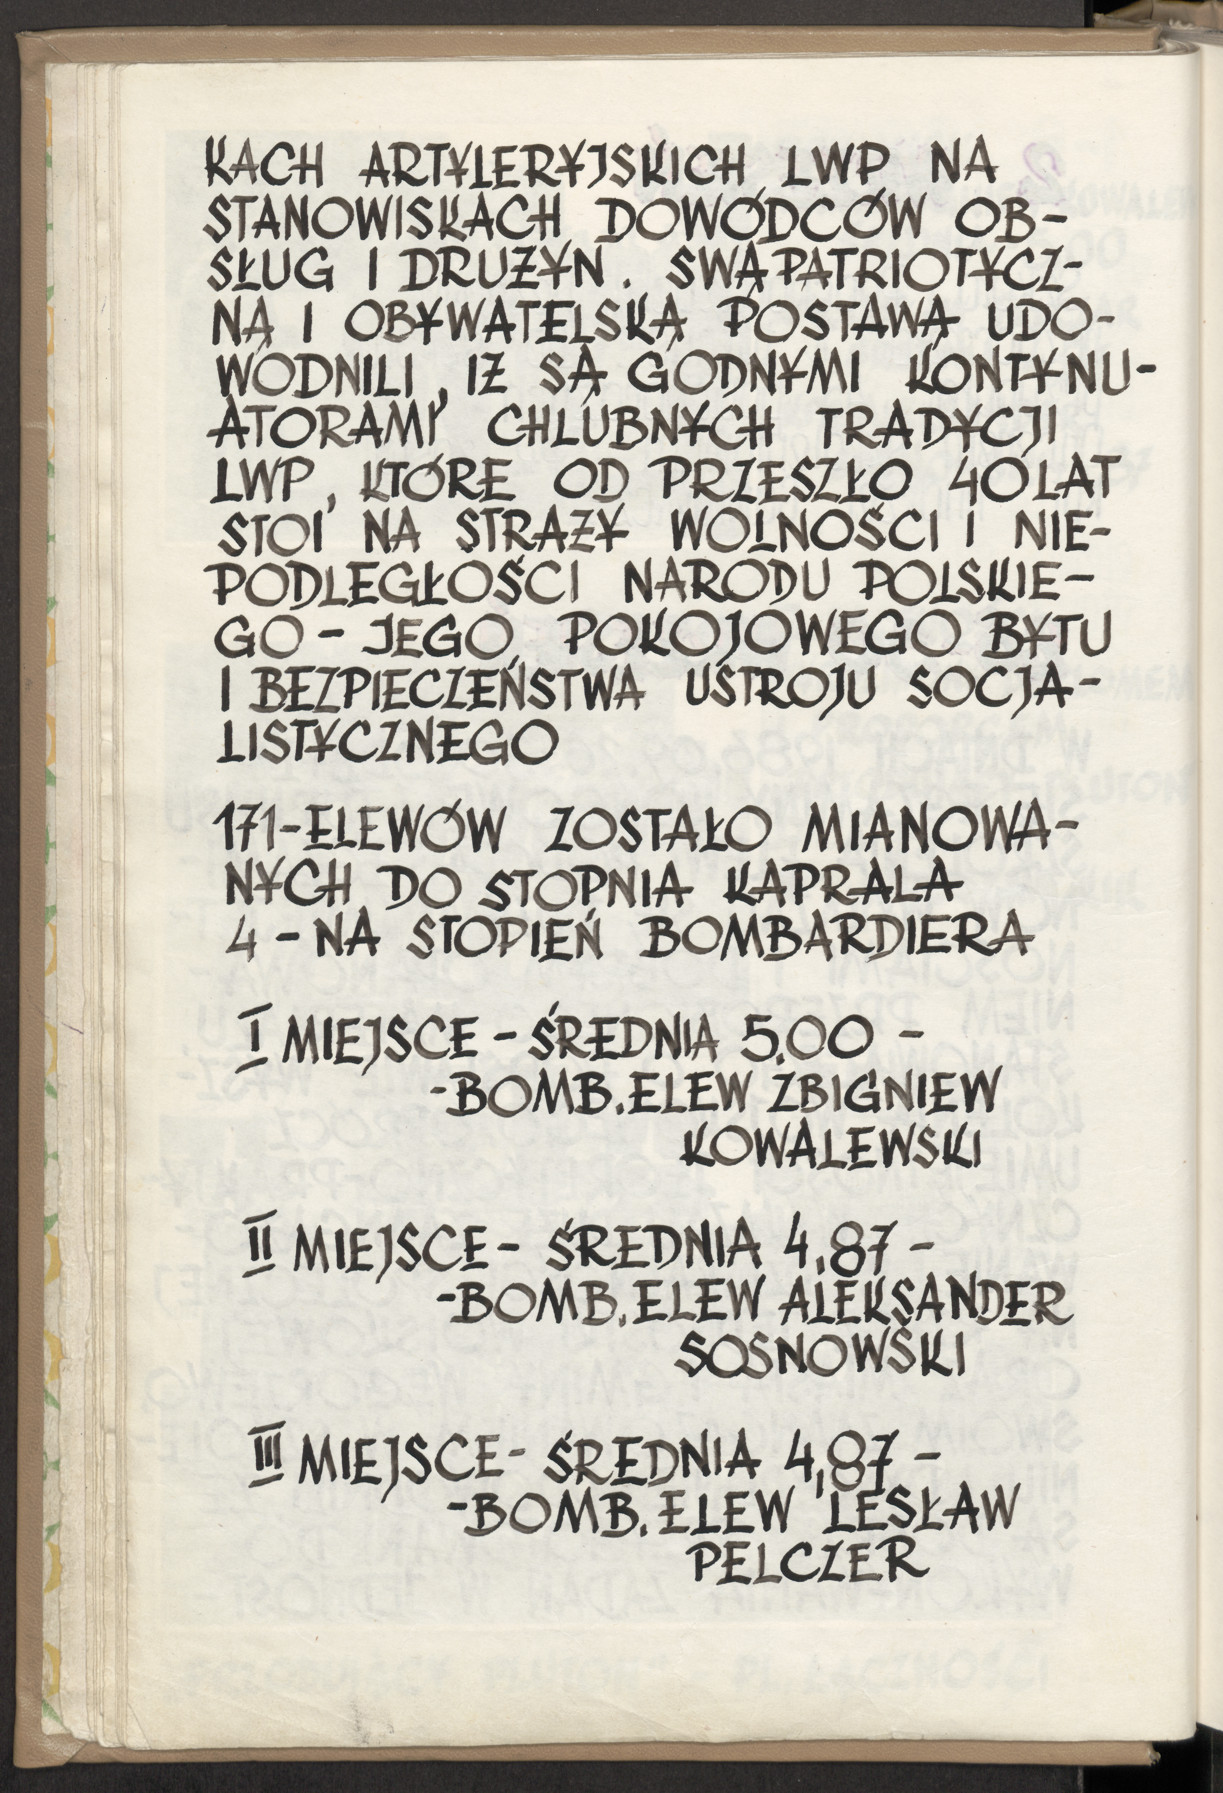 KACH ARTYLERYJSKICH LWP NA
STANOWISKACH DOWÓDCÓW OB-
SŁUG I DRUŻYN. SWĄ PATRIOTYCZ-
NĄ I OBYWATELSKĄ POSTAWĄ UDO-
WODNILI, IŻ SĄ GODNYMI KONTYNU-
ATORAMI CHLUBNYCH TRADYCJI
LWP, KTÓRE OD PRZESZŁO 40 LAT
STOI NA STRAŻY WOLNOŚCI I NIE-
PODLEGŁOŚCI NARODU POLSKIE-
GO - JEGO POKOJOWEGO BYTU
I BEZPIECZEŃSTWA USTROJU SOCJA-
LISTYCZNEGO
171-ELEWÓW ZOSTAŁO MIANOWA-
NYCH DO STOPNIA KAPRALA
4 - NA STOPIEŃ BOMBARDIERA
I MIEJSCE - ŚREDNIA 5,00 -
-BOMB. ELEW ZBIGNIEW
KOWALEWSKI
II MIEJSCE - ŚREDNIA 4,87 -
-BOMB. ELEW ALEKSANDER
SOSNOWSKI
III MIEJSCE - ŚREDNIA 4,87 -
-BOMB. ELEW LESŁAW
PELCZER